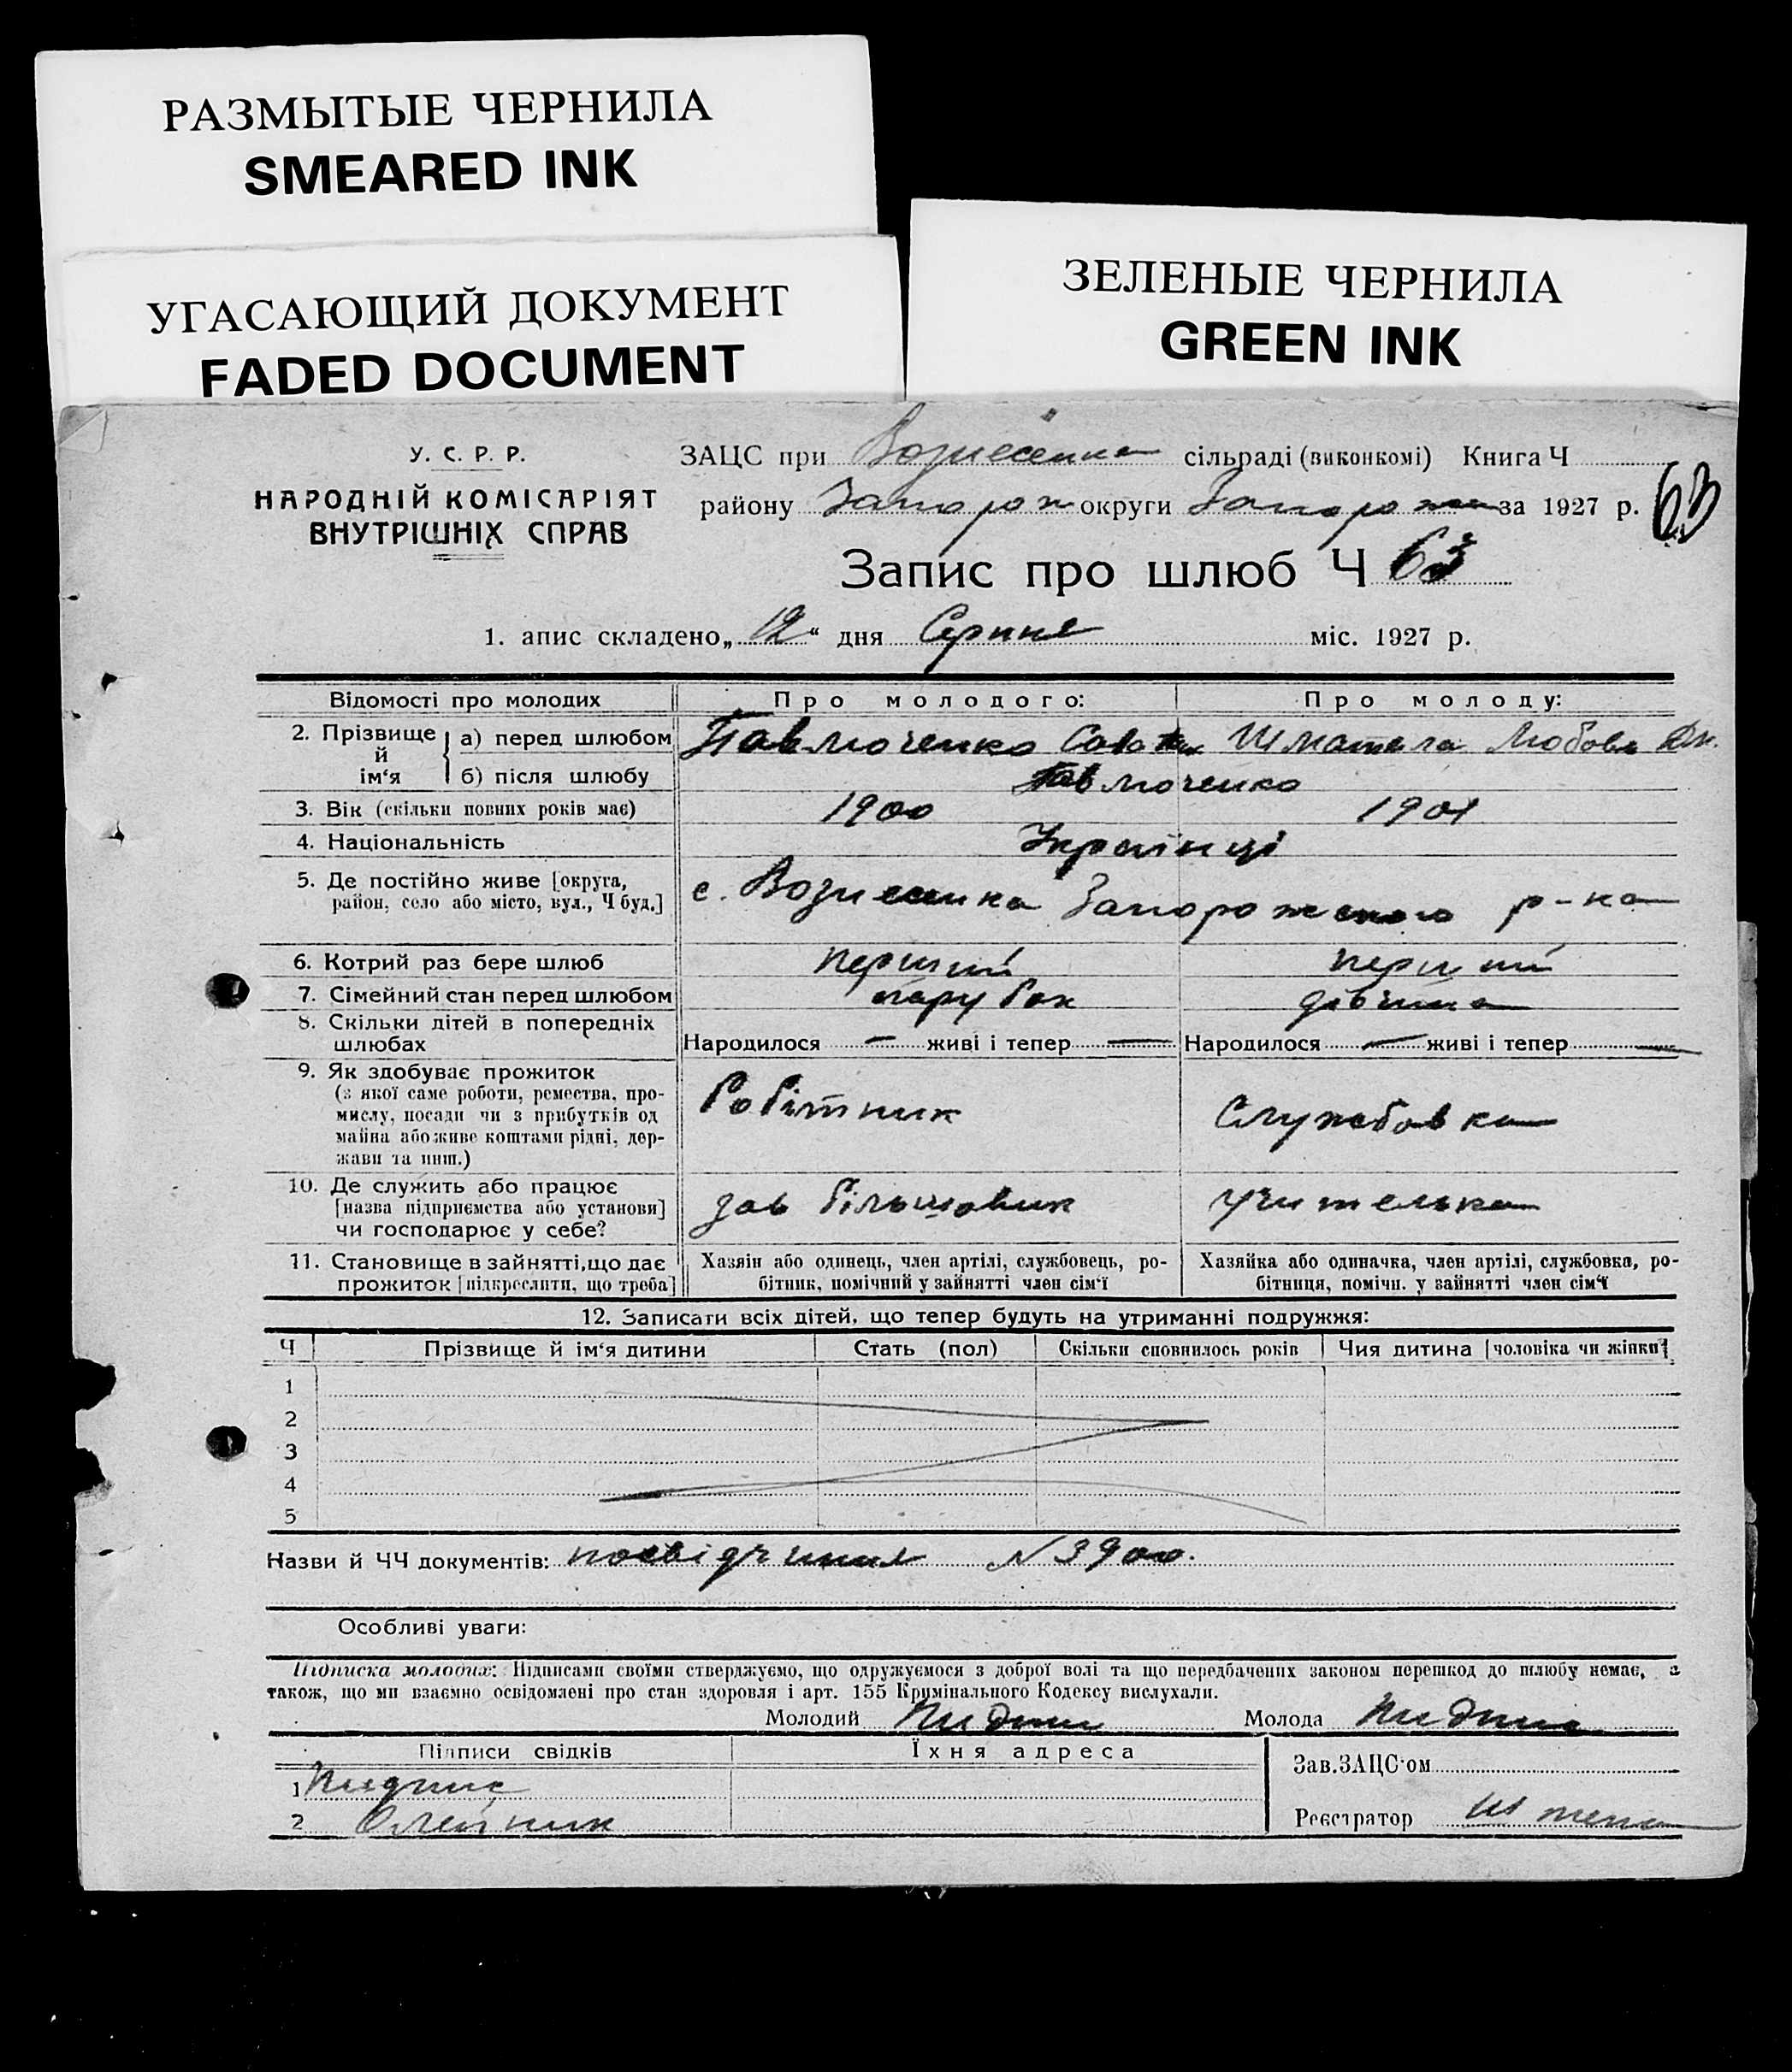 РАЗМЫТЫЕ ЧЕРНИЛА
SMEARED INK
УГАСАЮЩИЙ ДОКУМЕНТ
FADED DOCUMENT
ЗЕЛЕНЫЕ ЧЕРНИЛА
GREEN INK
У. С. Р. Р.
НАРОДНІЙ КОМІСАРІЯТ
ВНУТРІШНІХ СПРАВ
ЗАЦС при Вознесенка сільраді (виконкомі) Книга Ч
району Запорож округи Запорож за 1927 р. 63
Запис про шлюб Ч 63
1. апис складено „12“ дня Серпня міс. 1927 р.
Відомості про молодих Про молодого: Про молоду:
2. Прізвище й ім‘я а) перед шлюбом Павлюченко Шматела Любовь
б) після шлюбу Павлюченко
3. Вік (скільки повних років має) 1900 1901
4. Національність Українці
5. Де постійно живе [округа,
район, село або місто, вул., Ч буд.] с. Вознесенка Запорожского р-на
6. Котрий раз бере шлюб перший перший
7. Сімейний стан перед шлюбом парубок дівчина
8. Скільки дітей в попередніх
шлюбах Народилося — живі і тепер — Народилося — живі і тепер —
9. Як здобуває прожиток
(з якої саме роботи, ремества, про-
мислу, посади чи з прибутків од
майна або живе коштами рідні, дер-
жави та инш.) Робітник Службовка
10. Де служить або працює
[назва підприємства або установи]
чи господарює у себе? зав Більшовик учителька
11. Становище в зайнятті, що дає
прожиток [підкреслити, що треба]
Хазяїн або одинець, член артілі, службовець, ро-
бітник, помічний у зайнятті член сім‘ї
Хазяйка або одиначка, член артілі, службовка, ро-
бітниця, помічн. у зайнятті член сім‘ї
12. Записати всіх дітей, що тепер будуть на утриманні подружжя:
Ч Прізвище й ім‘я дитини Стать (пол) Скільки сповнилось років Чия дитина [чоловіка чи жінки]
1
2
3
4
5
Назви й ЧЧ документів: посвідчиння N 3900.
Особливі уваги:
Підписка молодих: Підписами своїми стверджуємо, що одружуємося з доброї волі та що передбачених законом перешкод до шлюбу немає, а
також, що ми взаємно освідомлені про стан здоровля і арт. 155 Кримінального Кодексу вислухали.
Молодий Пидпис Молода Пидпис
Підписи свідків Їхня адреса
1 Пидпис
2 Олейник
Зав.ЗАЦС‘ом
Реєстратор